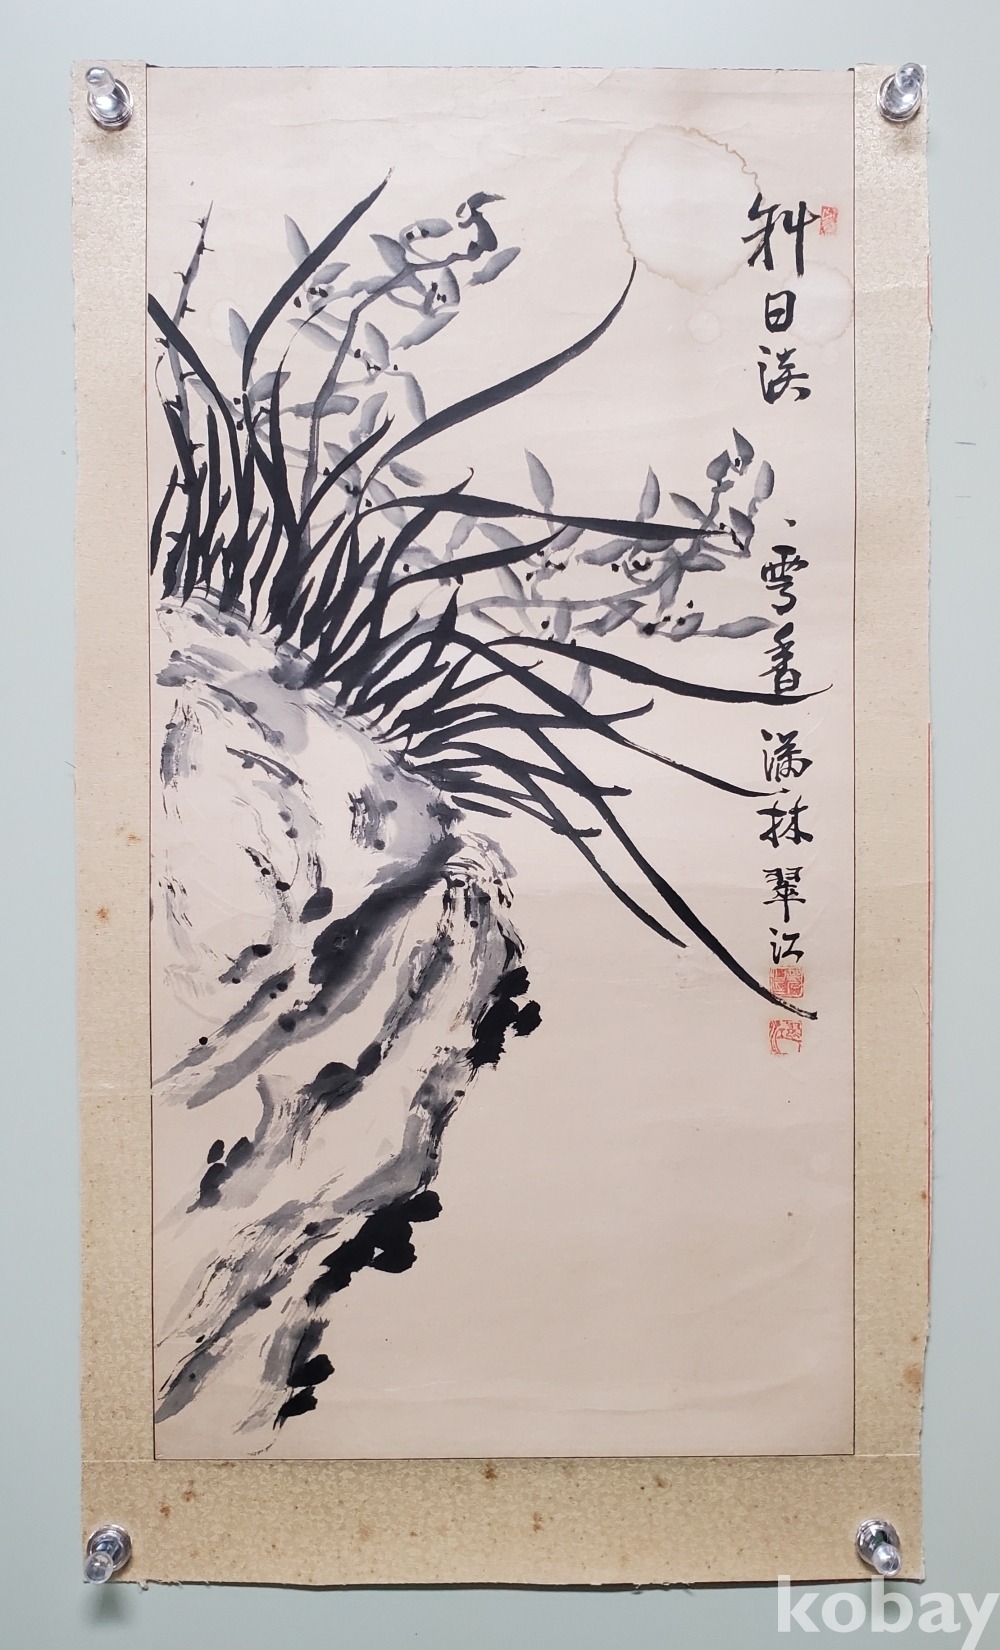 斜日淡
雪香
滿林
翠江
kobay